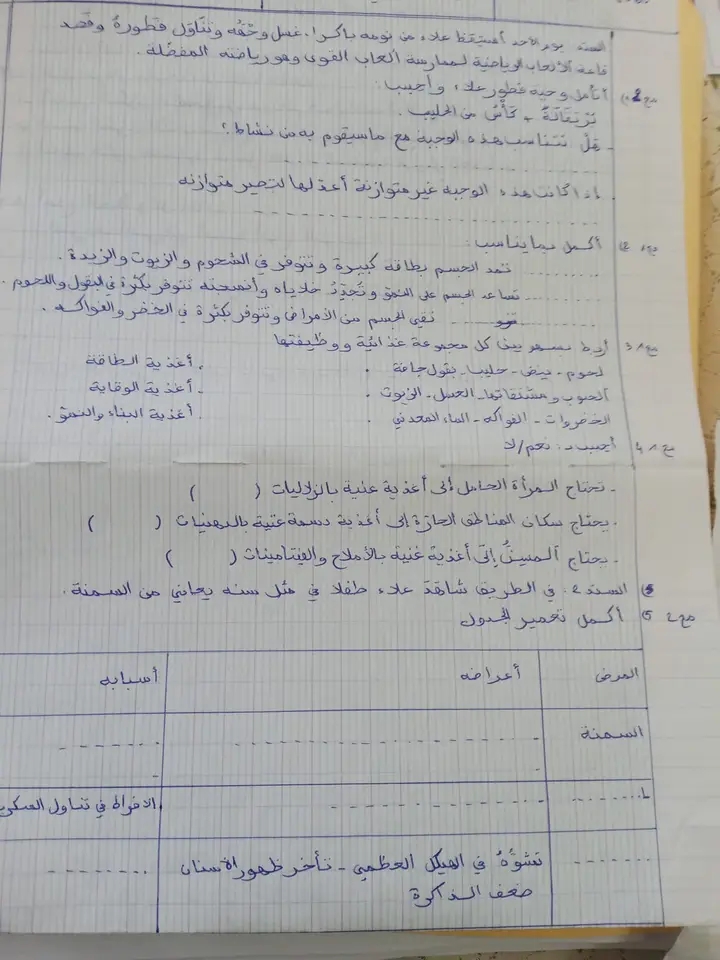 السند يوم الأحد استيقظ علاء من نومه باكرا. غسل وجهه وتناول فطوره وقصد
قاعة الألعاب الرياضية لممارسة ألعاب القوى وهو رياضته المفضلة.
مع 2 أتأمل وجبة فطور علاء وأجيب:
بُرْتقالةٌ + كأسُ من الحليب.
- هل تتناسب هذه الوجبة مع ما سيقوم به من نشاط؟
إذا كانت هذه الوجبة غير متوازنة أعدلها لتصير متوازنة
مع 1 2) أكمل بما يناسب:
............ تمد الجسم بطاقة كبيرة وتتوفر في الشحوم والزيوت والزبدة.
............ تساعد الجسم على النمو وتُجَدِّدُ خلاياه وأنسجته تتوفر بكثرة في البقول واللحوم.
............ تقي الجسم من الأمراض وتتوفر بكثرة في الخضر والفواكه.
مع 1 3) أربط بسهم بين كل مجموعة غذائية ووظيفتها
لحوم - بيض - حليب - بقول جافة . . أغذية الطاقة
الحبوب ومشتقاتها - العسل - الزيوت . . أغذية الوقاية
الخضروات - الفواكه - الماء المعدني . . أغذية البناء والنمو.
مع 1 4) أجيب بـ: نعم/لا
- تحتاج المرأة الحامل إلى أغذية غنية بالزلاليات ( )
- يحتاج سكان المناطق الحارة إلى أغذية دسمة غنية بالدهنيات ( )
- يحتاج المسنُّ إلى أغذية غنية بالأملاح والفيتامينات ( )
السند 2: في الطريق شاهد علاء طفلا في مثل سنه يعاني من السمنة.
مع 2 5) أكمل تعمير الجدول
المرض أعراضه أسبابه
السمنة
الافراط في تناول
تشوُّهُ في الهيكل العظمي - تأخر ظهور الأسنان
ضعف الذاكرة